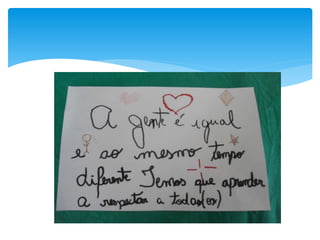 A gente é igual
e ao mesmo tempo
diferente Temos que aprender
a respeitar a todas(os)